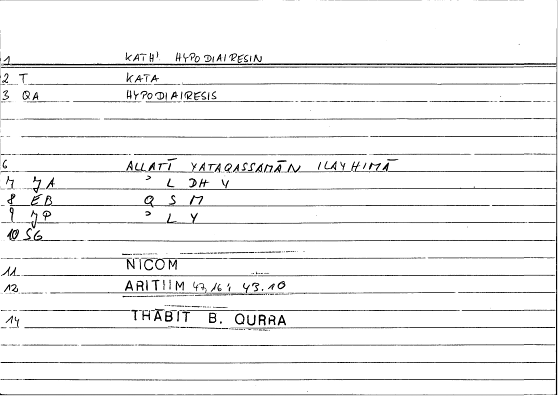 1 KATH' HYPODIAIRESIN
2 T KATA
3 QA HYPODIAIRESIS
6 ALLATĪ YATAQASSAMĀN ILAYHIMĀ
7 JA ʾ L DH Y
8 EB Q S M
9 JP ʾ L Y
10 SG
11 NICOM
12 ARITIIM 47,16; 43.10
14 THĀBIT B. QURRA